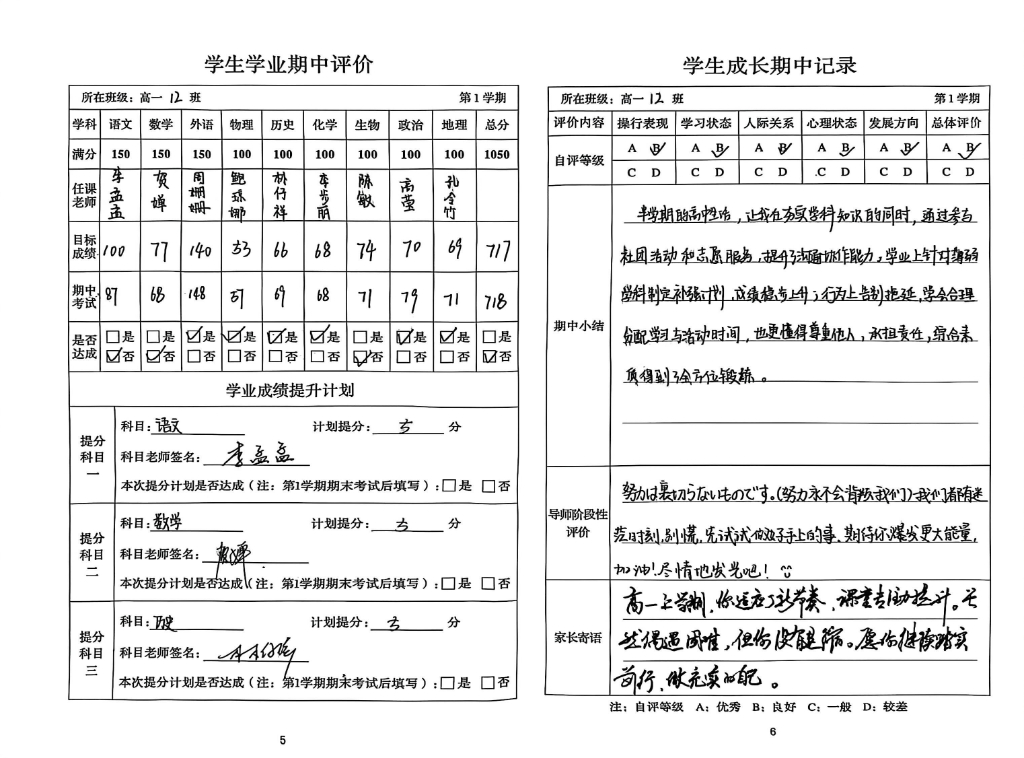 学生学业期中评价
所在班级：高一 12 班 第1学期
学科 语文 数学 外语 物理 历史 化学 生物 政治 地理 总分
满分 150 150 150 100 100 100 100 100 100 1050
任课老师 李孟孟 贺婵 周姗姗 鲍琼娜 林仔祥 李步丽 陈敏 高莹 孔令竹
目标成绩 100 77 140 53 66 68 74 70 69 717
期中考试 87 68 148 57 69 68 71 79 71 718
是否达成 □是 □是 ☑是 ☑是 ☑是 ☑是 □是 ☑是 ☑是 □是
☑否 ☑否 □否 □否 □否 □否 ☑否 □否 □否 ☑否
学业成绩提升计划
提分科目一
科目：语文 计划提分：5 分
科目老师签名：李孟孟
本次提分计划是否达成（注：第1学期期末考试后填写）：□是 □否
提分科目二
科目：数学 计划提分：5 分
科目老师签名：贺婵
本次提分计划是否达成（注：第1学期期末考试后填写）：□是 □否
提分科目三
科目：历史 计划提分：5 分
科目老师签名：
本次提分计划是否达成（注：第1学期期末考试后填写）：□是 □否
5
学生成长期中记录
所在班级：高一 12 班 第1学期
评价内容 操行表现 学习状态 人际关系 心理状态 发展方向 总体评价
自评等级
A B A B A B A B A B A B
C D C D C D C D C D C D
期中小结
半学期的高中生活，让我在夯实学科知识的同时，通过参与
社团活动和志愿服务，提升了沟通协作能力。学业上针对薄弱
学科制定补强计划，成绩稳步上升；行为上告别拖延，学会合理
分配学习与活动时间，也更懂得尊重他人，承担责任，综合素
质得到了全方位锻炼。
导师阶段性评价
努力は裏切らないものです。(努力永不会背叛我们)我们都有迷
茫时刻，别慌，先试试做好手上的事，期待你爆发更大能量，
加油！尽情地发光吧！
家长寄语
高一上学期，你适应了新节奏，课堂专注力提升。虽
然偶遇困难，但你没有退缩。愿你继续踏实
前行，做充实的自己。
注：自评等级 A：优秀 B：良好 C：一般 D：较差
6